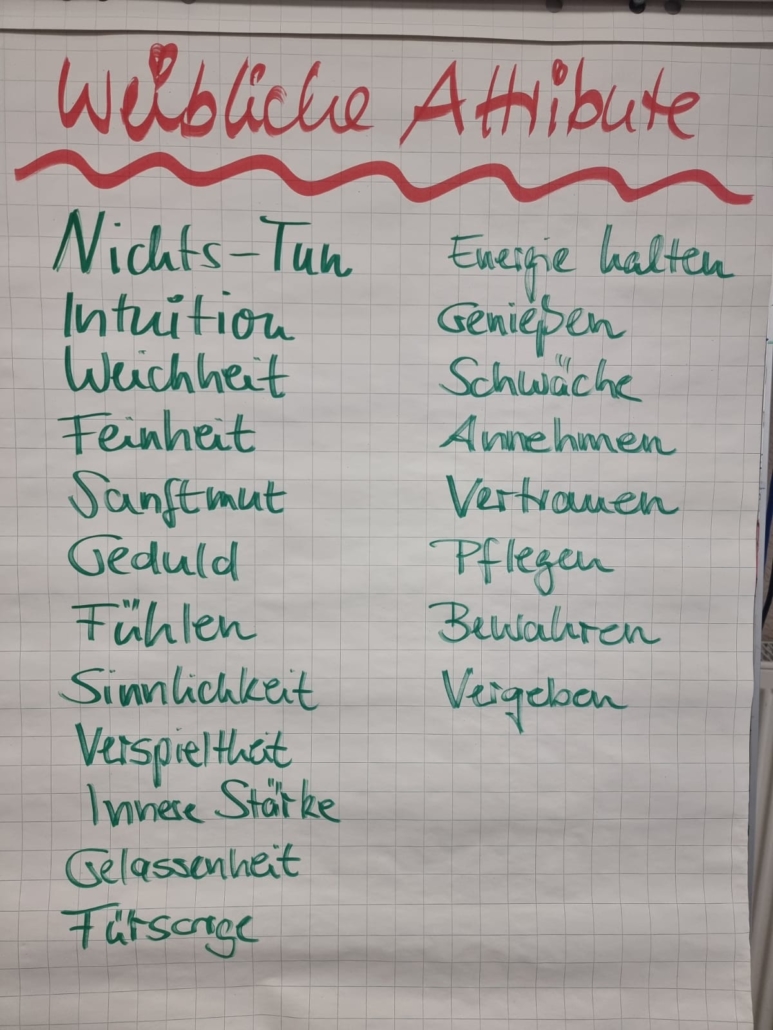 Weibliche Attribute
Nichts-Tun
Intuition
Weichheit
Feinheit
Sanftmut
Geduld
Fühlen
Sinnlichkeit
Verspieltheit
Innere Stärke
Gelassenheit
Fürsorge
Energie halten
Genießen
Schwäche
Annehmen
Vertrauen
Pflegen
Bewahren
Vergeben